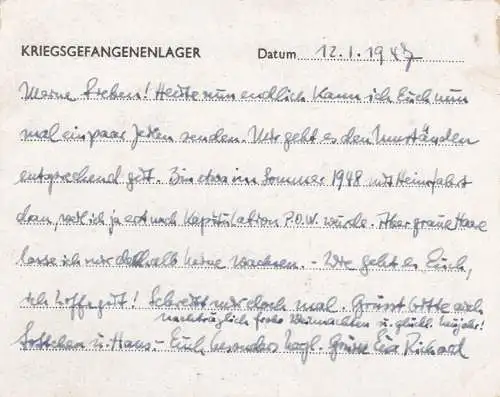 KRIEGSGEFANGENENLAGER Datum 12.1.1947
Meine Lieben! Heute nun endlich kann ich Euch nun
mal ein paar Zeilen senden. Mir geht es den Umständen
entsprechend gut. Bin etwa im Sommer 1948 mit Heimfahrt
dran, weil ich ja erst nach Kapitulation P.O.W. wurde. Aber graue Haare
lasse ich mir deshalb keine wachsen. – Wie geht es Euch,
ich hoffe gut! Schreibt mir doch mal. Grüsst bitte auch
nachträglich frohe Weihnachten u. glückl. Neujahr!
u. Hans. – Euch besonders herzl. Grüsse Euer Richard